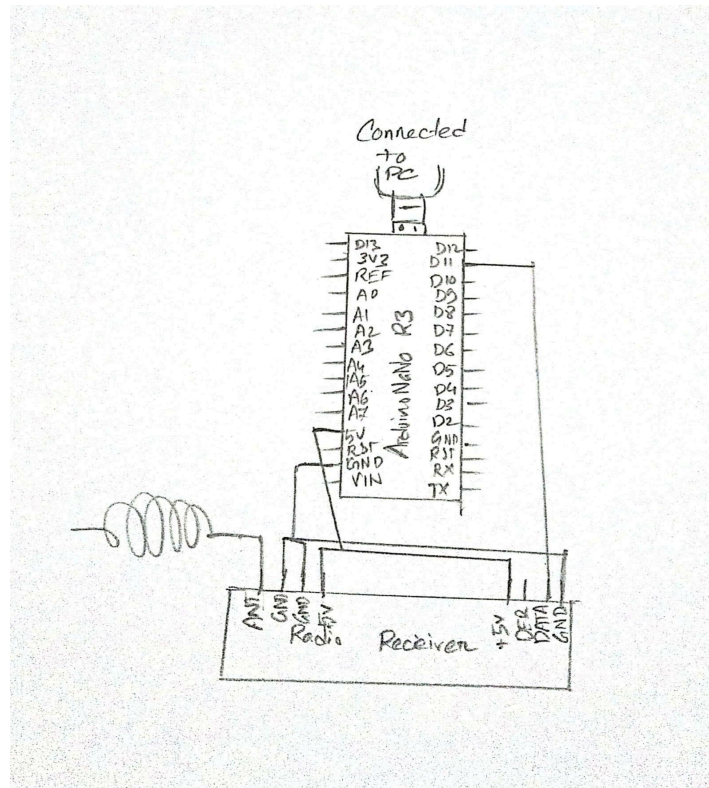 Connected
to
PC
D13
3V3
REF
A0
A1
A2
A3
A4
A5
A6
A7
5V
RST
GND
VIN
Arduino NaNo R3
D12
D11
D10
D9
D8
D7
D6
D5
D4
D3
D2
GND
RST
RX
TX
ANT
GND
GND
+5V
Radio Receiver
+5V
DER
DATA
GND